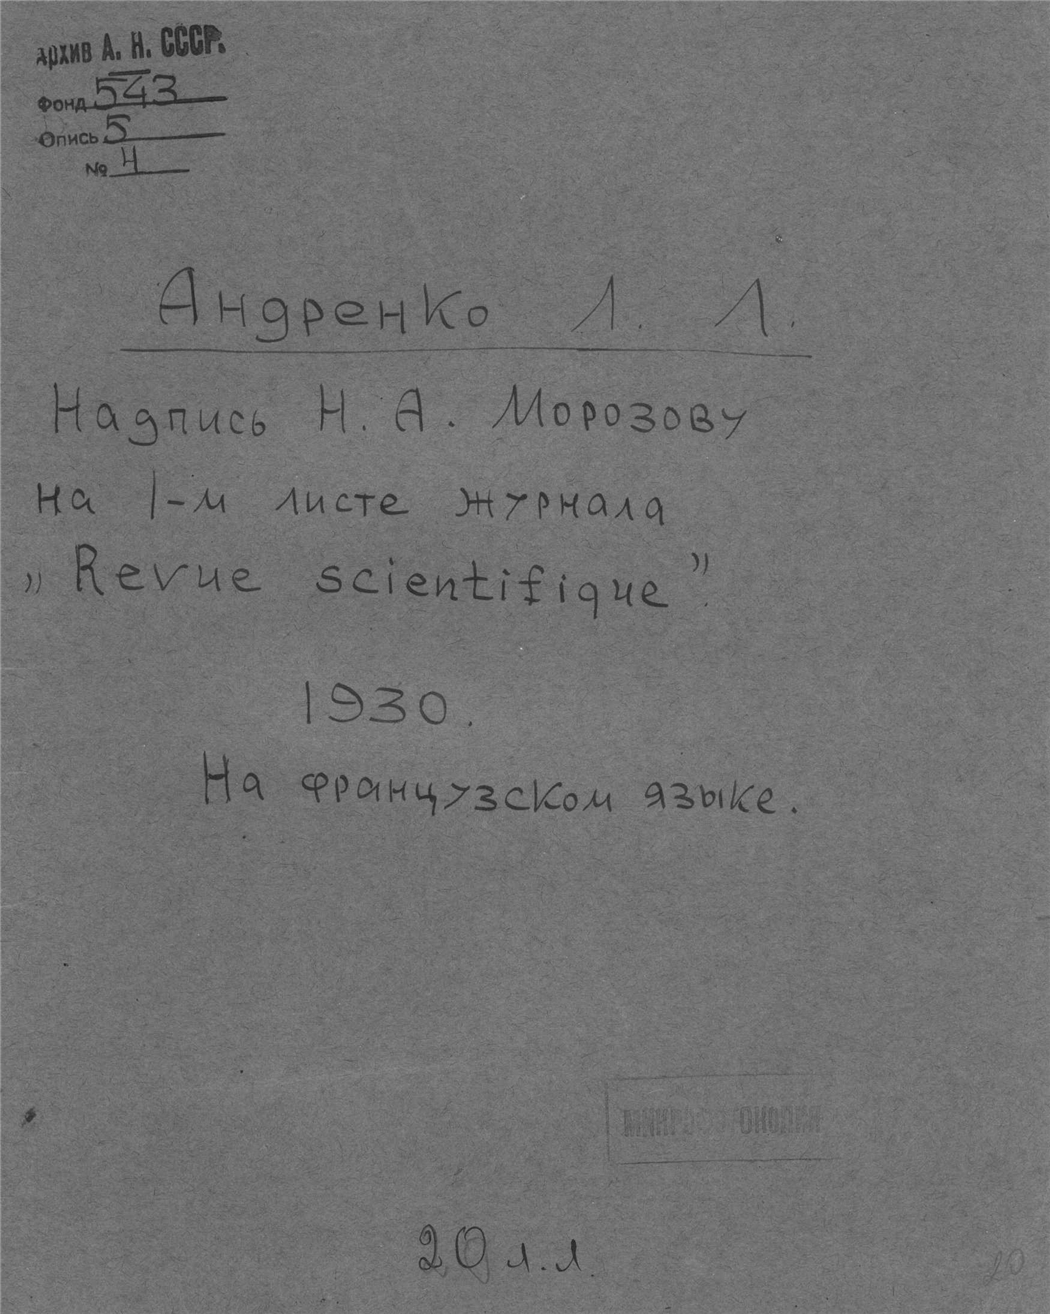 архив А. Н. СССР.
Фонд 543
Опись 5
№ 4
Андренко Л. Л.
Надпись Н. А. Морозову
на 1-м листе журнала
„Revue scientifique”.
1930.
На французском языке.
20 л.л.
20